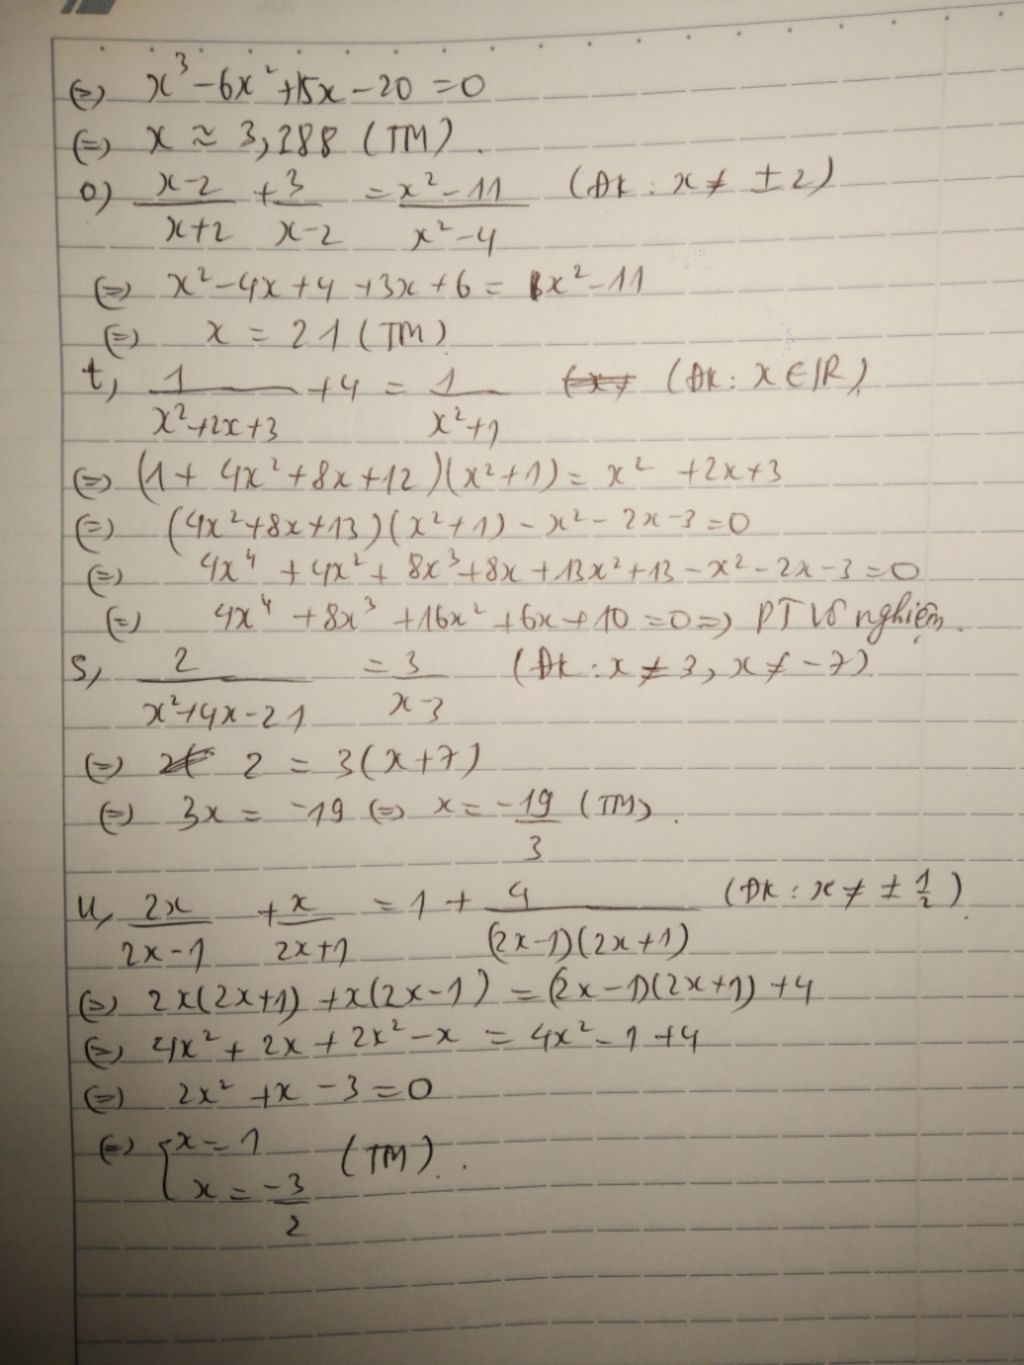 (=) x³ - 6x² + 15x - 20 = 0
(=) x ≈ 3,288 (TM).
o) (x-2)/(x+2) + 3/(x-2) = (x²-11)/(x²-4) (ĐK: x ≠ ±2)
(=) x² - 4x + 4 + 3x + 6 = x² - 11
(=) x = 21 (TM)
t, 1/(x²+2x+3) + 4 = 1/(x²+1) (ĐK: x ∈ ℝ)
(=) (1 + 4x² + 8x + 12)(x² + 1) = x² + 2x + 3
(=) (4x² + 8x + 13)(x² + 1) - x² - 2x - 3 = 0
(=) 4x⁴ + 4x² + 8x³ + 8x + 13x² + 13 - x² - 2x - 3 = 0
(=) 4x⁴ + 8x³ + 16x² + 6x + 10 = 0 => PT Vô nghiệm.
s, 2/(x²+4x-21) = 3/(x-3) (ĐK: x ≠ 3, x ≠ -7)
(=) 2 = 3(x+7)
(=) 3x = -19 (=) x = -19/3 (TM).
u, 2x/(2x-1) + x/(2x+1) = 1 + 4/((2x-1)(2x+1)) (ĐK: x ≠ ±1/2)
(=) 2x(2x+1) + x(2x-1) = (2x-1)(2x+1) + 4
(=) 4x² + 2x + 2x² - x = 4x² - 1 + 4
(=) 2x² + x - 3 = 0
(=) { x = 1
x = -3/2 (TM).